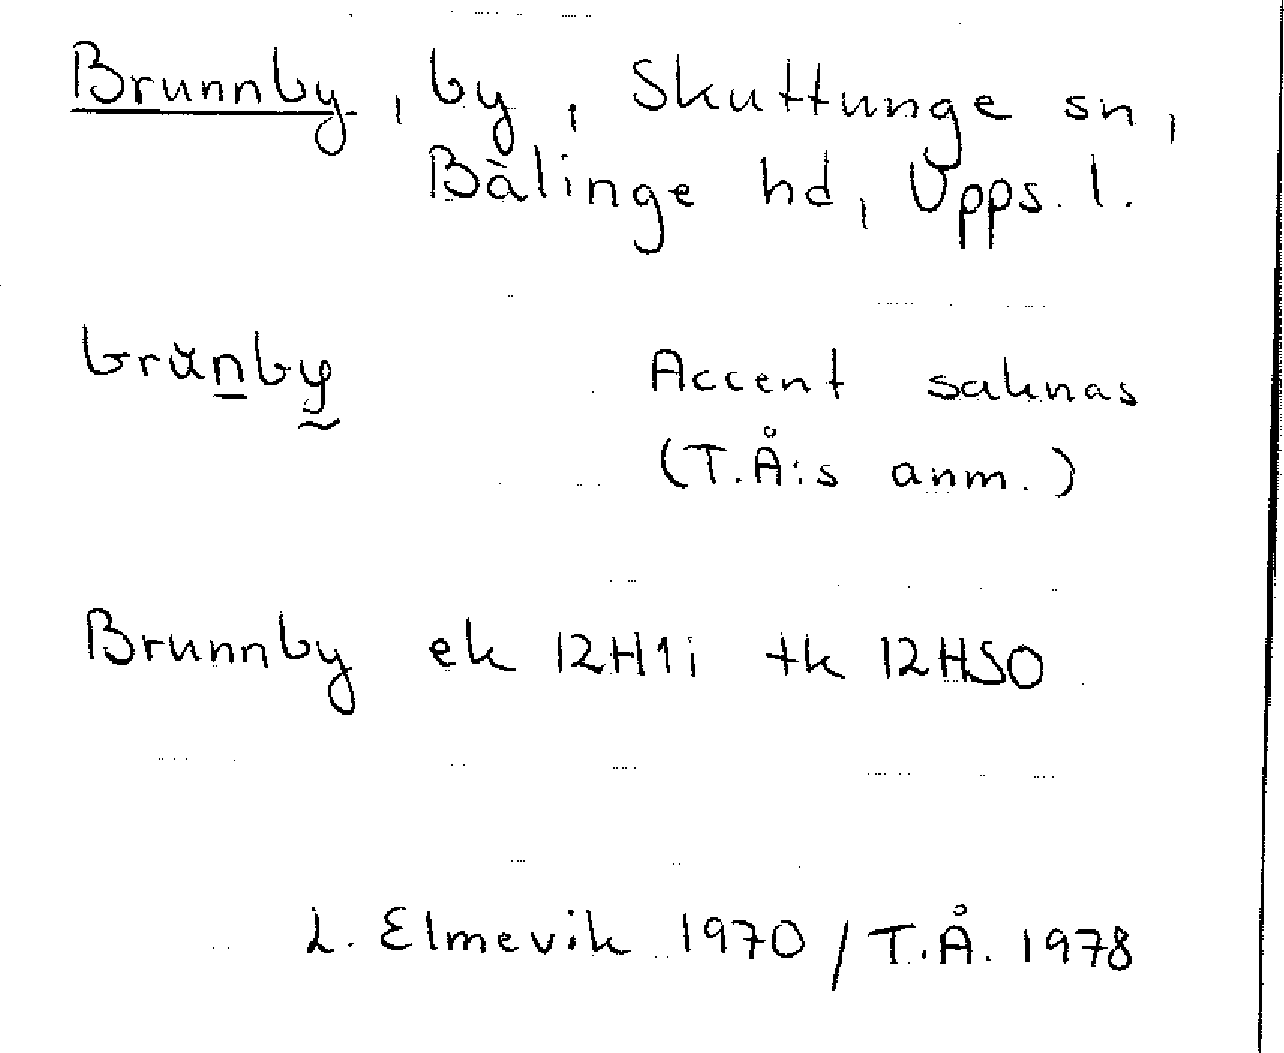 Brunnby, by, Skuttunge sn,
Bälinge hd, Upps. l.
brŭn̲by̰ Accent saknas
(T.Å:s anm.)
Brunnby ek 12H1i tk 12HSO
L. Elmevik 1970 / T.Å. 1978